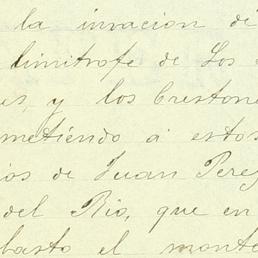 la invacion de
limitrofe de Los
y los Crestone
metiendo á estos
ios de Juan Perez
del Rio, que en
basto el monte